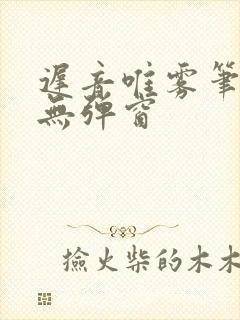 遲音唯霧筆
無彈窗
撿火柴的木木